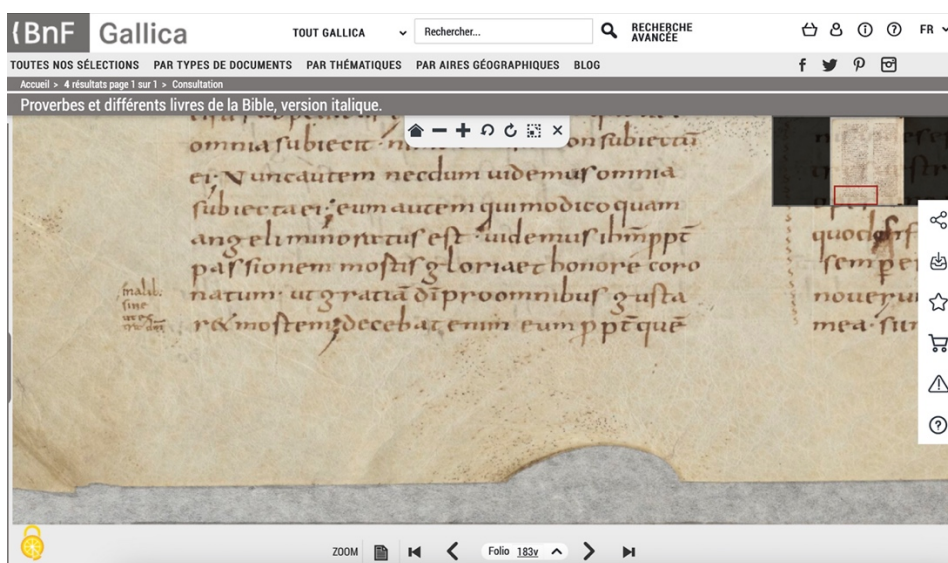 BnF Gallica
TOUT GALLICA
Rechercher...
RECHERCHE
AVANCÉE
FR
TOUTES NOS SÉLECTIONS PAR TYPES DE DOCUMENTS PAR THÉMATIQUES PAR AIRES GÉOGRAPHIQUES BLOG
Accueil > 4 résultats page 1 sur 1 > Consultation
Proverbes et différents livres de la Bible, version italique.
omnia subiecit onsubiectū
ei; Nuncautem necdum uidemus omnia
subiectaei; eum autem qui modico quam
angeli minoratus est uidemus ihm̄ ppt̄
passionem mortis gloriaet honorē coro
natum; ut gratiā dī pro omnibus gusta
ret mortem; decebat enim eum ppt̄ quē
malib.
sine
semper
mea sun
ZOOM
Folio 183v